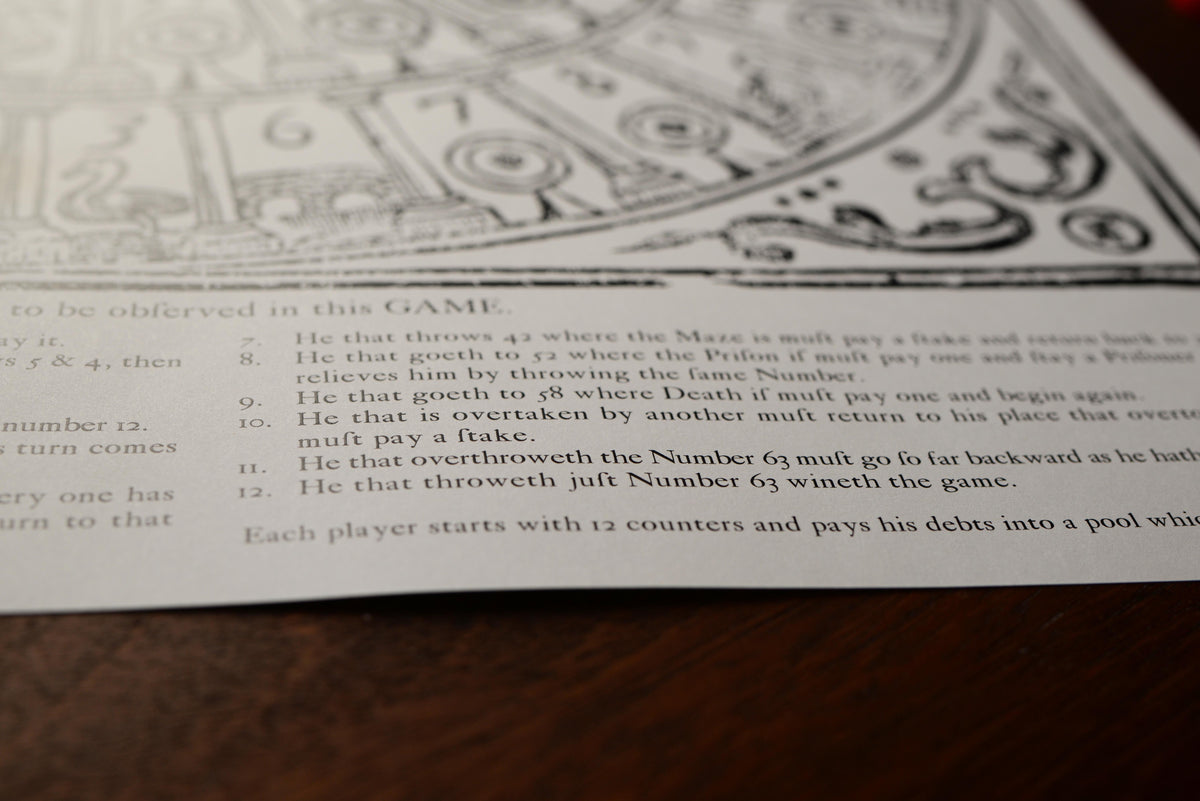 6
7
8
to be obſerved in this GAME.
ay it.
rs 5 & 4, then
number 12.
s turn comes
ery one has
urn to that
7. He that throws 42 where the Maze is muſt pay a ſtake and return back to
8. He that goeth to 52 where the Priſon iſ muſt pay one and ſtay a Priſoner
relieves him by throwing the ſame Number.
9. He that goeth to 58 where Death iſ muſt pay one and begin again.
10. He that is overtaken by another muſt return to his place that overto
muſt pay a ſtake.
11. He that overthroweth the Number 63 muſt go ſo far backward as he hath
12. He that throweth juſt Number 63 wineth the game.
Each player starts with 12 counters and pays his debts into a pool whic